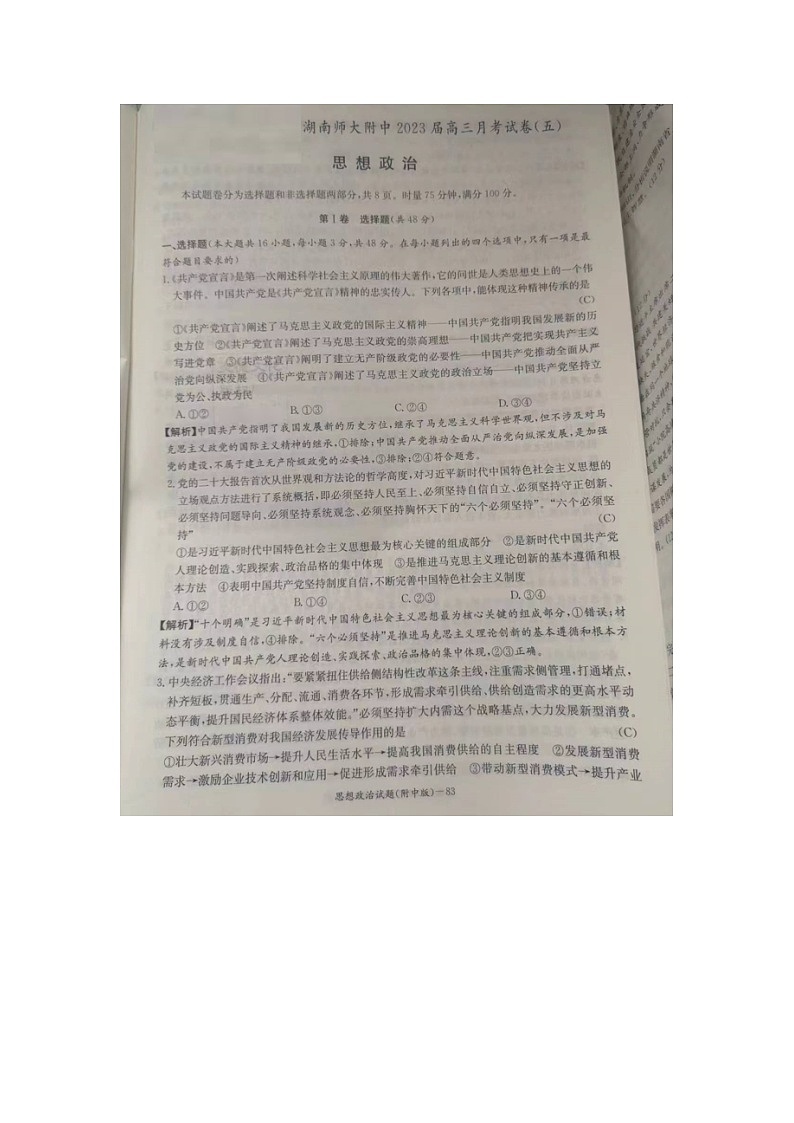 湖南师大附中2023届高三月考试卷(五)
思想政治
本试题卷分为选择题和非选择题两部分,共8页。时量75分钟,满分100分。
第Ⅰ卷 选择题(共48分)
一、选择题(本大题共16小题,每小题3分,共48分。在每小题列出的四个选项中,只有一项是最
符合题目要求的)
1.《共产党宣言》是第一次阐述科学社会主义原理的伟大著作,它的问世是人类思想史上的一个伟
大事件。中国共产党是《共产党宣言》精神的忠实传人。下列各项中,能体现这种精神传承的是
(C)
①《共产党宣言》阐述了马克思主义政党的国际主义精神——中国共产党指明我国发展新的历
史方位 ②《共产党宣言》阐述了马克思主义政党的崇高理想——中国共产党把实现共产主义
写进党章 ③《共产党宣言》阐明了建立无产阶级政党的必要性——中国共产党推动全面从严
治党向纵深发展 ④《共产党宣言》阐述了马克思主义政党的政治立场——中国共产党坚持立
党为公、执政为民
A.①② B.①③ C.②④ D.③④
【解析】中国共产党指明了我国发展新的历史方位,继承了马克思主义科学世界观,但不涉及对马
克思主义政党的国际主义精神的继承,①排除;中国共产党推动全面从严治党向纵深发展,是加强
党的建设,不属于建立无产阶级政党的必要性,③排除;②④符合题意。
2.党的二十大报告首次从世界观和方法论的哲学高度,对习近平新时代中国特色社会主义思想的
立场观点方法进行了系统概括,即必须坚持人民至上、必须坚持自信自立、必须坚持守正创新、
必须坚持问题导向、必须坚持系统观念、必须坚持胸怀天下的“六个必须坚持”。“六个必须坚
持” (C)
①是习近平新时代中国特色社会主义思想最为核心关键的组成部分 ②是新时代中国共产党
人理论创造、实践探索、政治品格的集中体现 ③是推进马克思主义理论创新的基本遵循和根
本方法 ④表明中国共产党坚持制度自信,不断完善中国特色社会主义制度
A.①② B.①④ C.②③ D.③④
【解析】“十个明确”是习近平新时代中国特色社会主义思想最为核心关键的组成部分,①错误;材
料没有涉及制度自信,④排除。“六个必须坚持”是推进马克思主义理论创新的基本遵循和根本方
法,是新时代中国共产党人理论创造、实践探索、政治品格的集中体现,②③正确。
3.中央经济工作会议指出:“要紧紧扭住供给侧结构性改革这条主线,注重需求侧管理,打通堵点,
补齐短板,贯通生产、分配、流通、消费各环节,形成需求牵引供给、供给创造需求的更高水平动
态平衡,提升国民经济体系整体效能。”必须坚持扩大内需这个战略基点,大力发展新型消费。
下列符合新型消费对我国经济发展传导作用的是 (C)
①壮大新兴消费市场→提升人民生活水平→提高我国消费供给的自主程度 ②发展新型消费
需求→激励企业技术创新和应用→促进形成需求牵引供给 ③带动新型消费模式→提升产业
思想政治试题(附中版)-83